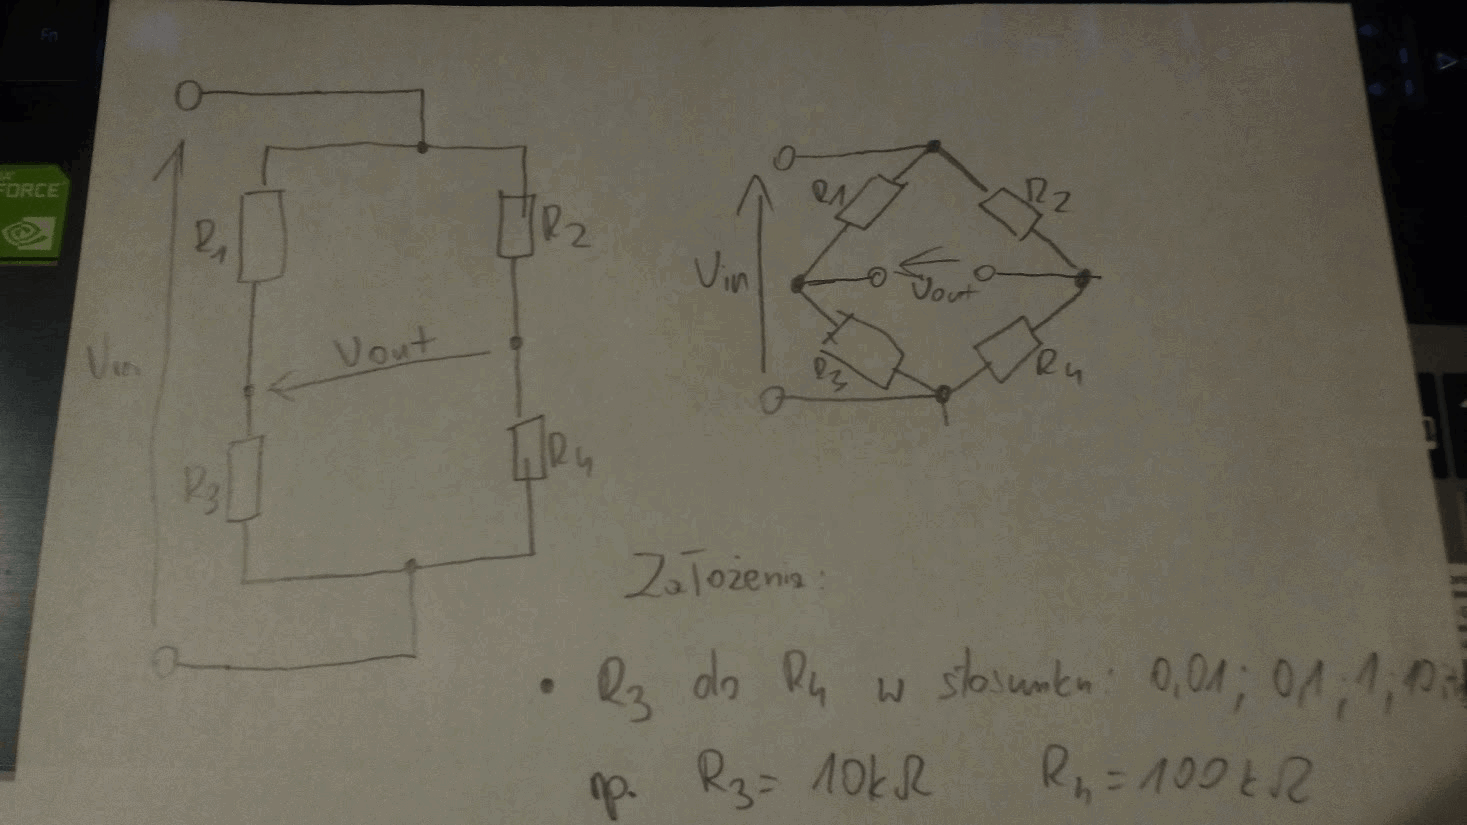 Fn
FORCE
R1
R2
Vin
Vout
R3
R4
R1
R2
Vin
Vout
R3
R4
Założenia:
• R3 do R4 w stosunku: 0,01; 0,1; 1; 10;
np. R3 = 10kΩ R4 = 100kΩ